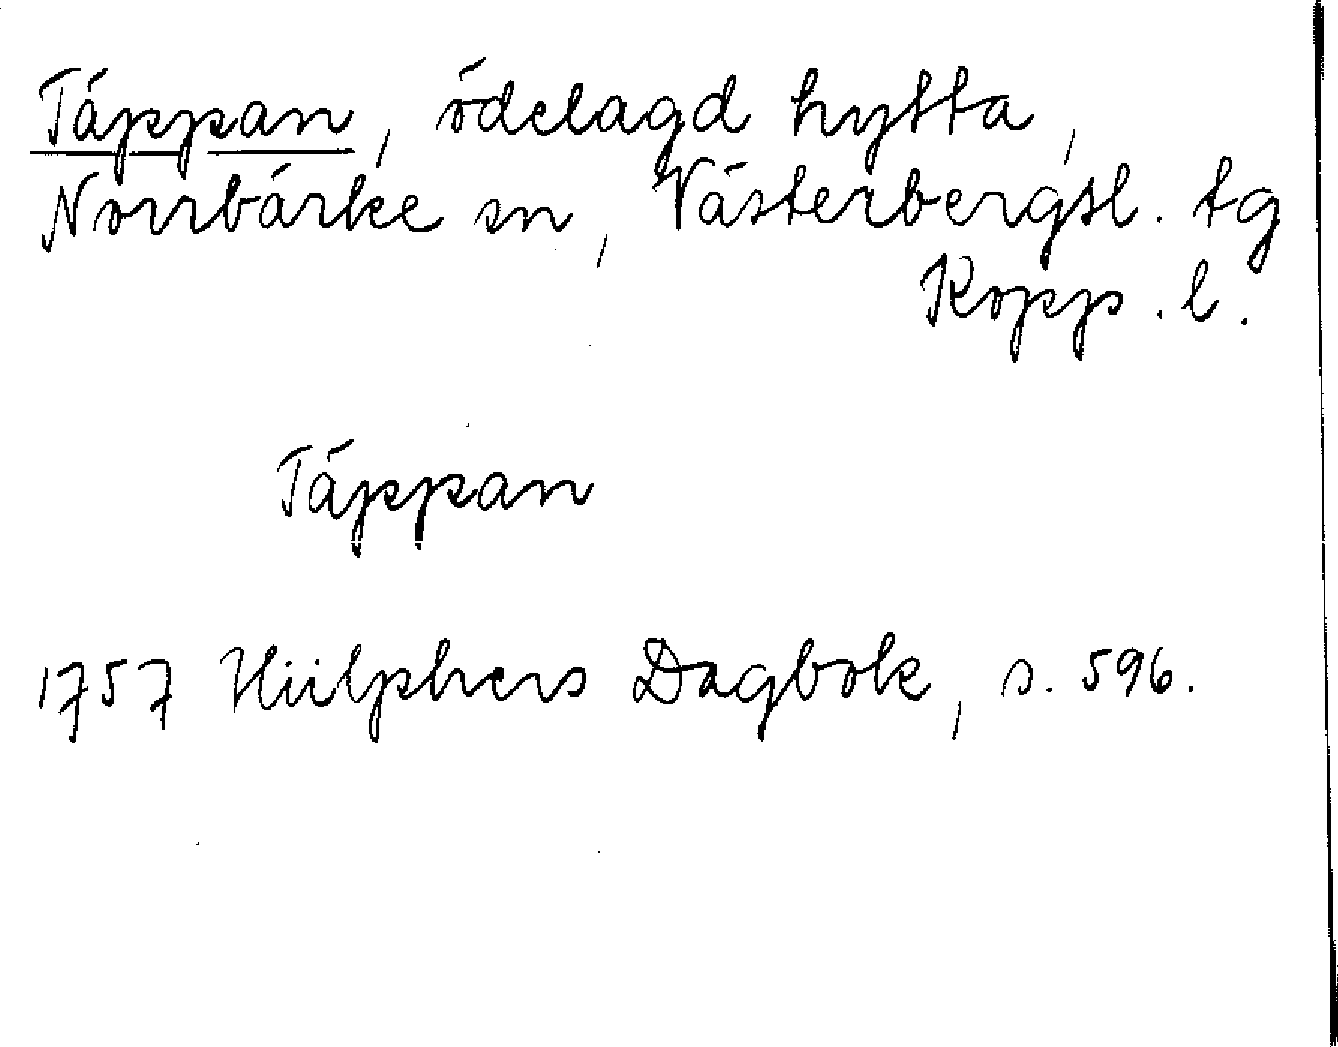 Täppan, ödelagd hytta,
Norrbärke sn, Västerbergsl. tg
Kopp. l.
Täppan
1757 Hülphers Dagbok, s. 596.